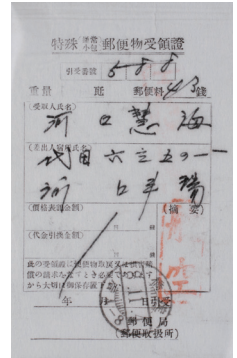 特殊(通常小包)郵便物受領證
引受番號 588
重量 瓩 郵便料 43 錢
(受取人氏名)
河口慧海
(差出人宿所氏名)
代田六三五の一
河口半瑞
(價格表記金額)
(摘要)
(代金引換金額)
此の受領證は郵便物
償の請求をなすとき必要で
から大切に御保存
年 月 日引受
郵便局
(郵便取扱所)